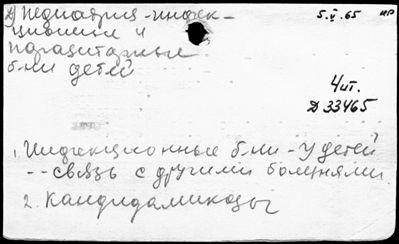 Педиатрия-инфек-
5.V.65
ционные и
паразитарные
б-ни детей
Чит.
Д 33465
1. Инфекционные б-ни - у детей
-- связь с другими болезнями
2. Кандидамикозы